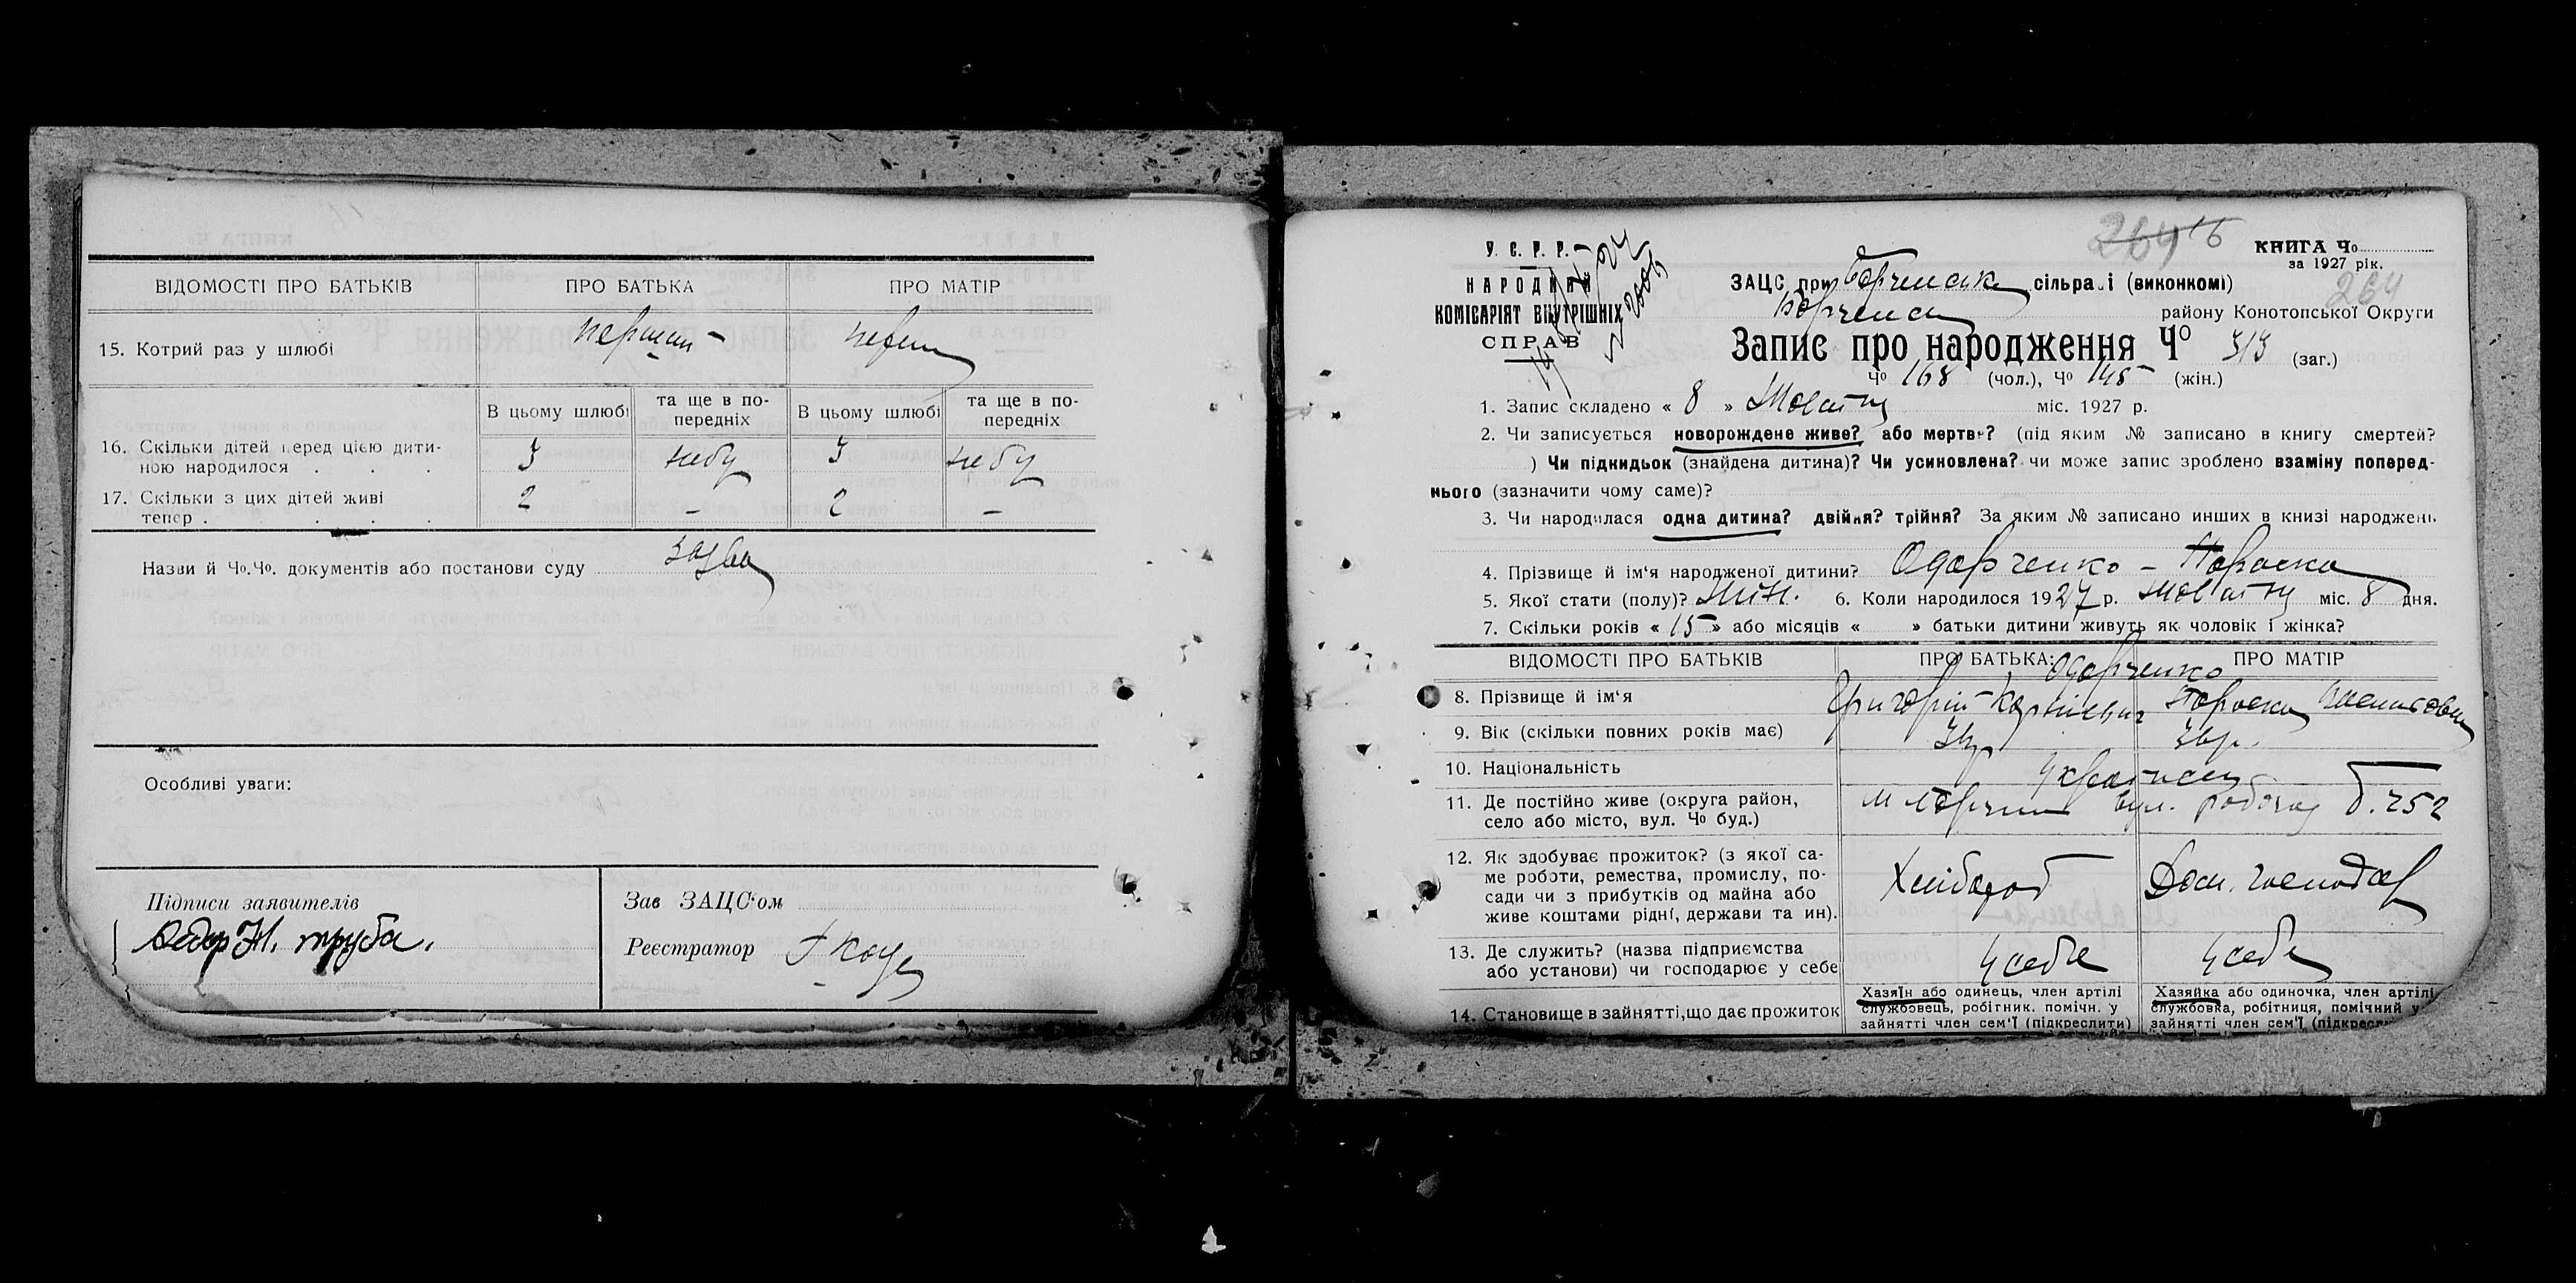 ВІДОМОСТІ ПРО БАТЬКІВ
ПРО БАТЬКА
ПРО МАТІР
15. Котрий раз у шлюбі
перший
перш
В цьому шлюбі
та ще в по-
передніх
В цьому шлюбі
та ще в по-
передніх
16. Скільки дітей перед цією дити-
ною народилося . . .
3
небу
3
небу
17. Скільки з цих дітей живі
тепер . . . .
2
–
2
–
Назви й Чо.Чо. документів або постанови суду
Особливі уваги:
Підписи заявителів
Зав ЗАЦС‘ом
труба.
Реєстратор
У. С. Р. Р.
НАРОДНИЙ
КОМІСАРІЯТ ВНУТРІШНІХ
СПРАВ
264
КНИГА Чо
за 1927 рік.
ЗАЦС при Борченськ сільраді (виконкомі)
264
Борченск району Конотопської Округи
Запис про народження Чо 313 (заг.)
Чо 168 (чол.), Чо 145 (жін.)
1. Запис складено « 8 » Жовтня міс. 1927 р.
2. Чи записується новорождене живе? або мертве? (під яким № записано в книгу смертей?
) Чи підкидьок (знайдена дитина)? Чи усиновлена? чи може запис зроблено взаміну поперед-
нього (зазначити чому саме)?
3. Чи народилася одна дитина? двійня? трійня? За яким № записано инших в книзі народжень
4. Прізвище й ім‘я народженої дитини? Одарченко – Параска
5. Якої стати (полу)? жін. 6. Коли народилося 1927 р. Жовтня міс. 8 дня.
7. Скільки років « 15 » або місяців « » батьки дитини живуть як чоловік і жінка?
ВІДОМОСТІ ПРО БАТЬКІВ
ПРО БАТЬКА:
ПРО МАТІР
Одарченко
8. Прізвище й ім‘я
Григорій Корнієвич
Параска
9. Вік (скільки повних років має)
10. Національність
Українці
11. Де постійно живе (округа район,
село або місто, вул. Чо буд.)
вул. робоча б. 252
12. Як здобуває прожиток? (з якої са-
ме роботи, ремества, промислу, по-
сади чи з прибутків од майна або
живе коштами рідні, держави та ин).
Хлібороб
Дом. господар
13. Де служить? (назва підприємства
або установи) чи господарює у себе
у себе
у себе
14. Становище в зайнятті,що дає прожиток
Хазяїн або одинець, член артілі
службовець, робітник. помічн. у
зайнятті член сем‘ї (підкреслити)
Хазяйка або одиночка, член артілі
службовка, робітниця, помічний у
зайнятті член сем‘ї